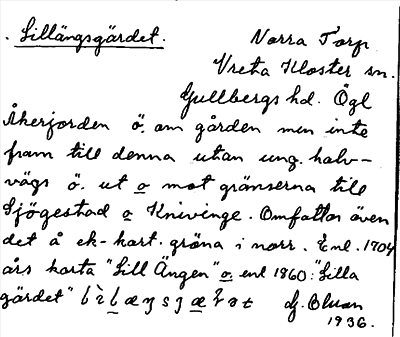 Lillängsgärdet. Norra Torp
Vreta Kloster sn.
Gullbergs hd. Ögl
Åkerjorden ö. om gården men inte
fram till denna utan ung. halv-
vägs ö. ut o mot gränserna till
Sjögestad o Knivinge. Omfattar även
det å ek-kart. gröna i norr. Enl. 1704
års karta "Lill Ängen" o, enl 1860: "Lilla
gärdet"
1936.